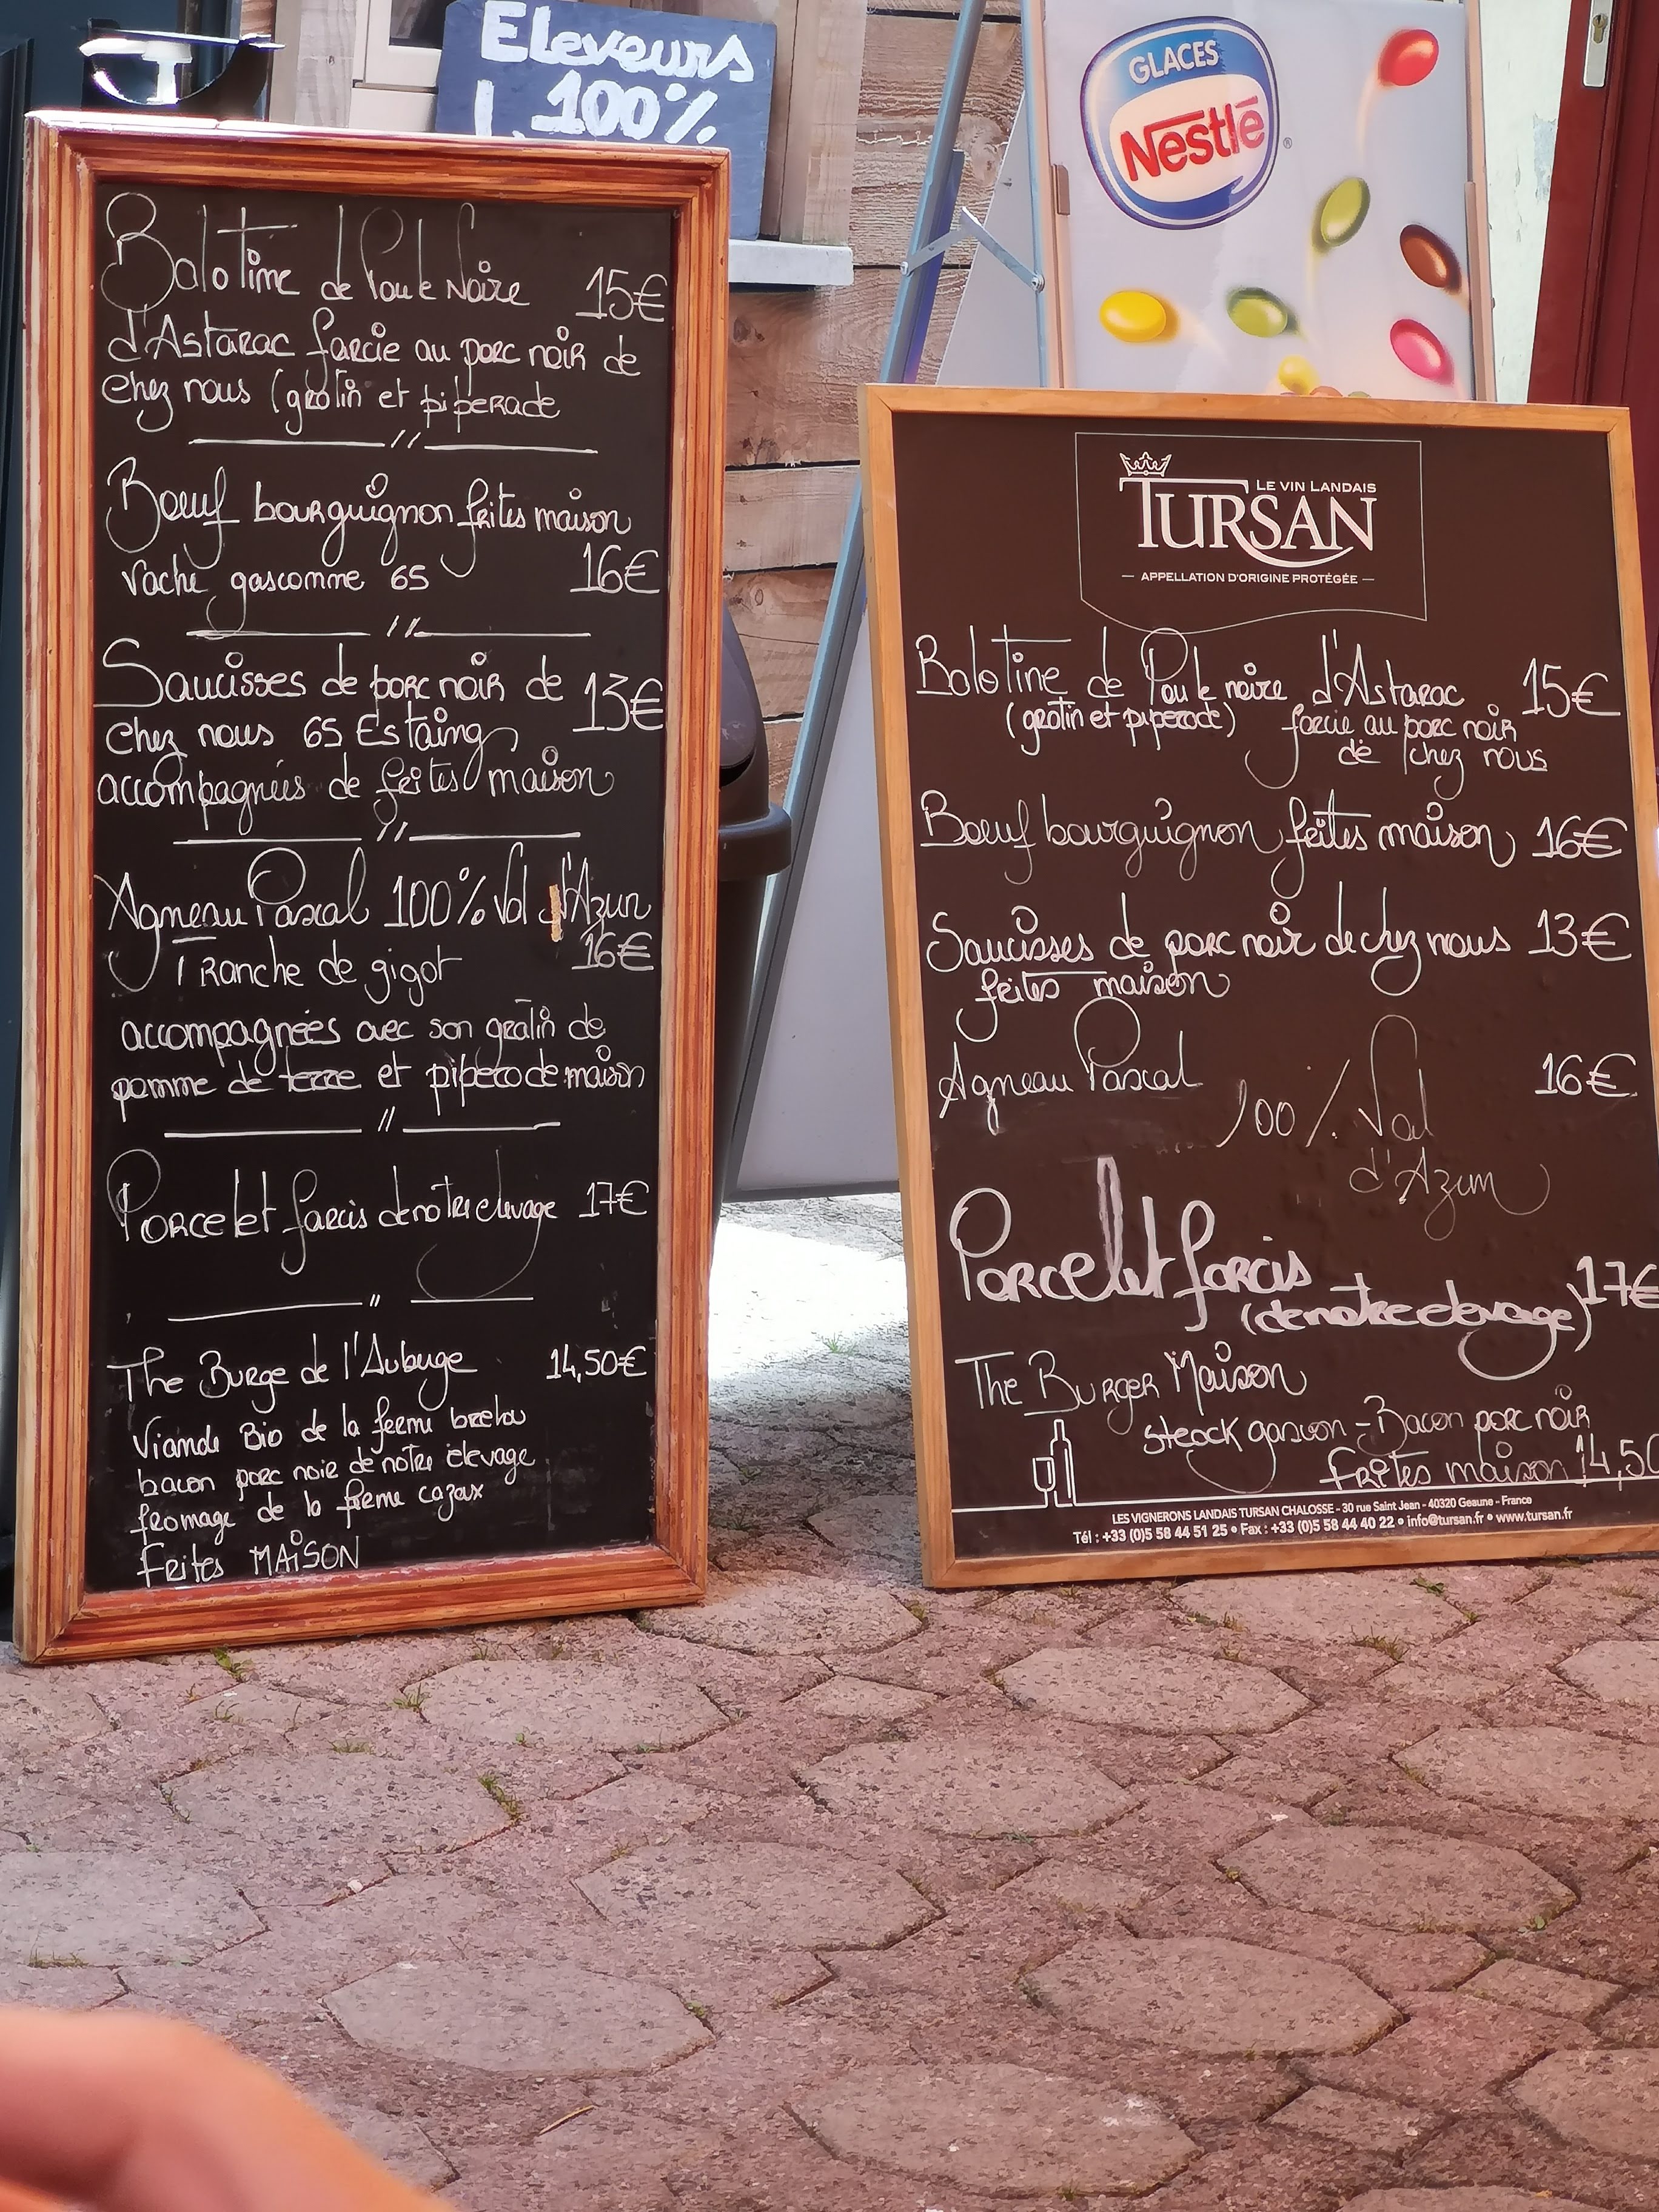 Eleveurs
100%
Balotine de Poule Noire 15€
d'Astarac farcie au porc noir de
chez nous (gratin et piperade
Bœuf bourguignon frites maison
vache gasconne 65 16€
Saucisses de porc noir de 13€
chez nous 65 Estaing
accompagnées de frites maison
Agneau Pascal 100% Val d'Azun
Tranche de gigot 16€
accompagnées avec son gratin de
pomme de terre et piperade maison
Porcelet farcis de notre elevage 17€
The Burge de l'Auberge 14,50€
Viande Bio de la ferme
bacon porc noir de notre élevage
fromage de la ferme cazaux
Frites MAISON
GLACES
Nestlé
LE VIN LANDAIS
TURSAN
— APPELLATION D'ORIGINE PROTÉGÉE —
Balotine de Poule noire d'Astarac 15€
(gratin et piperade) farcie au porc noir
de chez nous
Bœuf bourguignon frites maison 16€
Saucisses de porc noir de chez nous 13€
frites maison
Agneau Pascal 16€
100% Val
d'Azun
Porcelet farcis 17€
(de notre elevage)
The Burger Maison
steack gascon - Bacon porc noir
Frites maison 14,50
LES VIGNERONS LANDAIS TURSAN CHALOSSE - 30 rue Saint Jean - 40320 Geaune - France
Tél : +33 (0)5 58 44 51 25 • Fax : +33 (0)5 58 44 40 22 • info@tursan.fr • www.tursan.fr